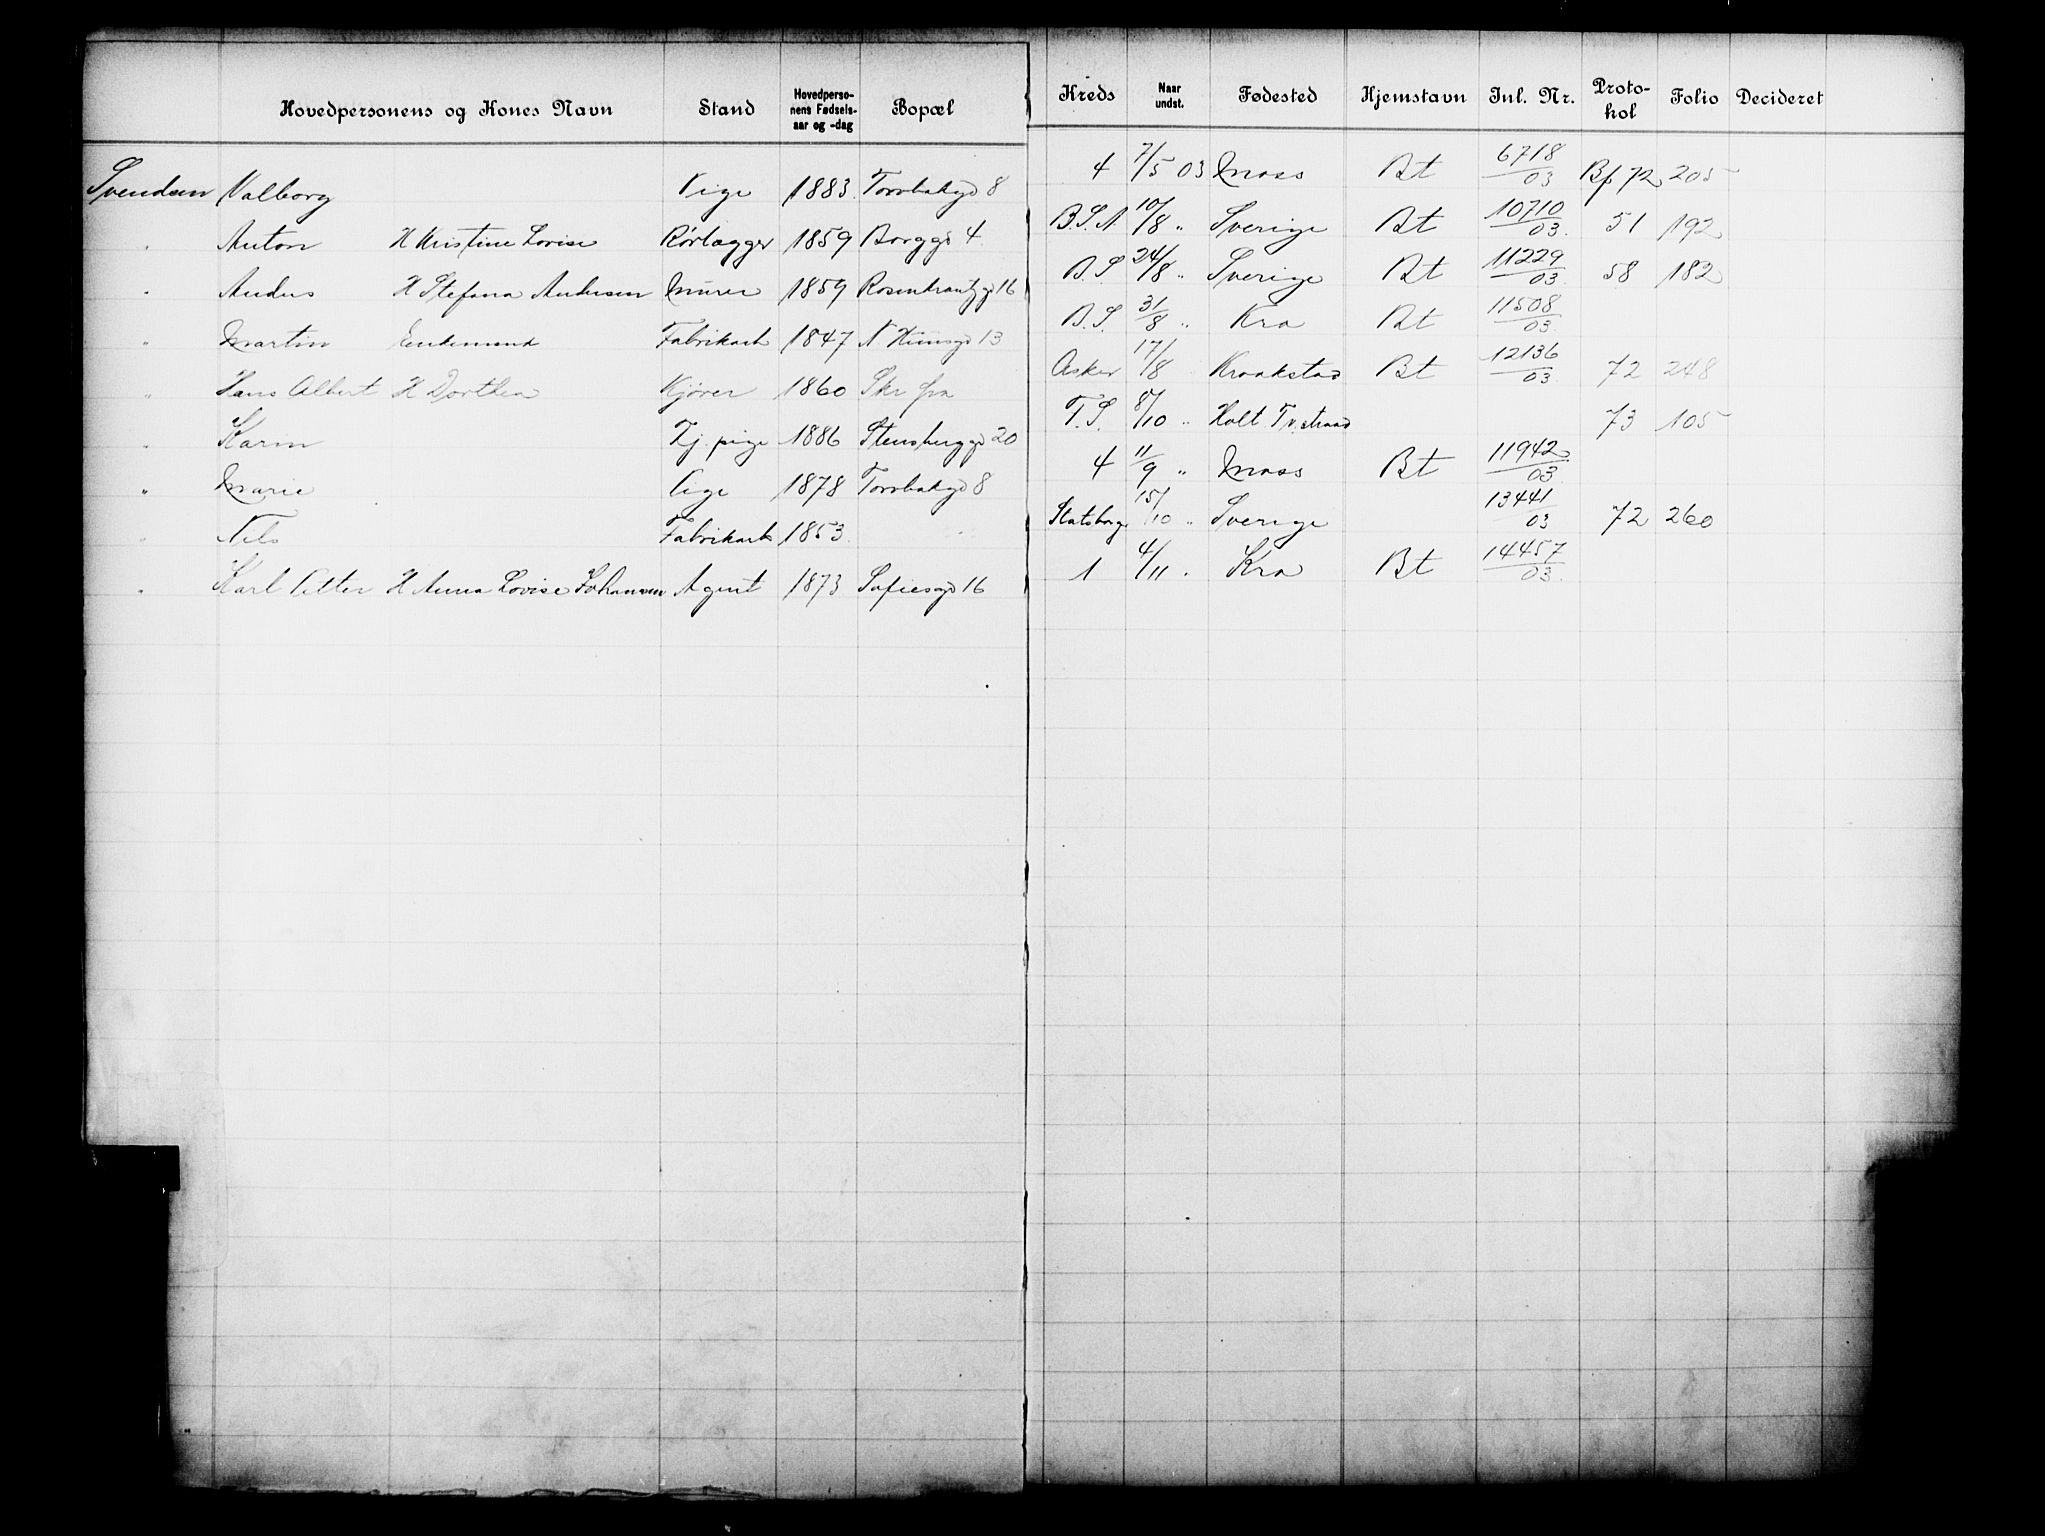 Hovedpersonens og Kones Navn Stand Hovedpersonens Fødselsaar og -dag Bopæl Kreds Naar undst. Fødested Hjemstavn Inl. Nr. Protokol Folio Decideret
Svendsen Valborg Pige 1883. Torvbakgd 8 4 7/5 03 Moss Bt 6718/03 Bf 72 205
" Anton H Kristine Lovise Rørlægger 1859 Borggd 4. B.S.A 10/8 " Sverige Bt 10710/03. 51 192
" Anders H Stefana Andersen Murer 1859 Rosenkrantzgd 16 B.S 24/8 " Sverige Bt 11229/03. 58 182
" Martin Enkemand Fabrikarb 1847 13 B.S. 31/8 " Kra Bt 11508/03.
" Hans Albert H Dorthea Kjører 1860 Skr fra Asker 17/8 Kraakstad Bt 12136/03. 72 248
" Karin Tj. pige 1886 Stensberggd 20 T.S. 8/10 " Holt Tv.strand 73 105
" Marie Pige 1878 Torvbakgd 8 4 11/9 " Moss Bt 11942/03
" Nils Fabrikarb 1853. " 15/10 " Sverige 13441/03 72 260
" Karl Petter H Anna Lovise Johansen Agent 1873 Sofiesgd 16 1 4/11 . Kra Bt 14457/03.